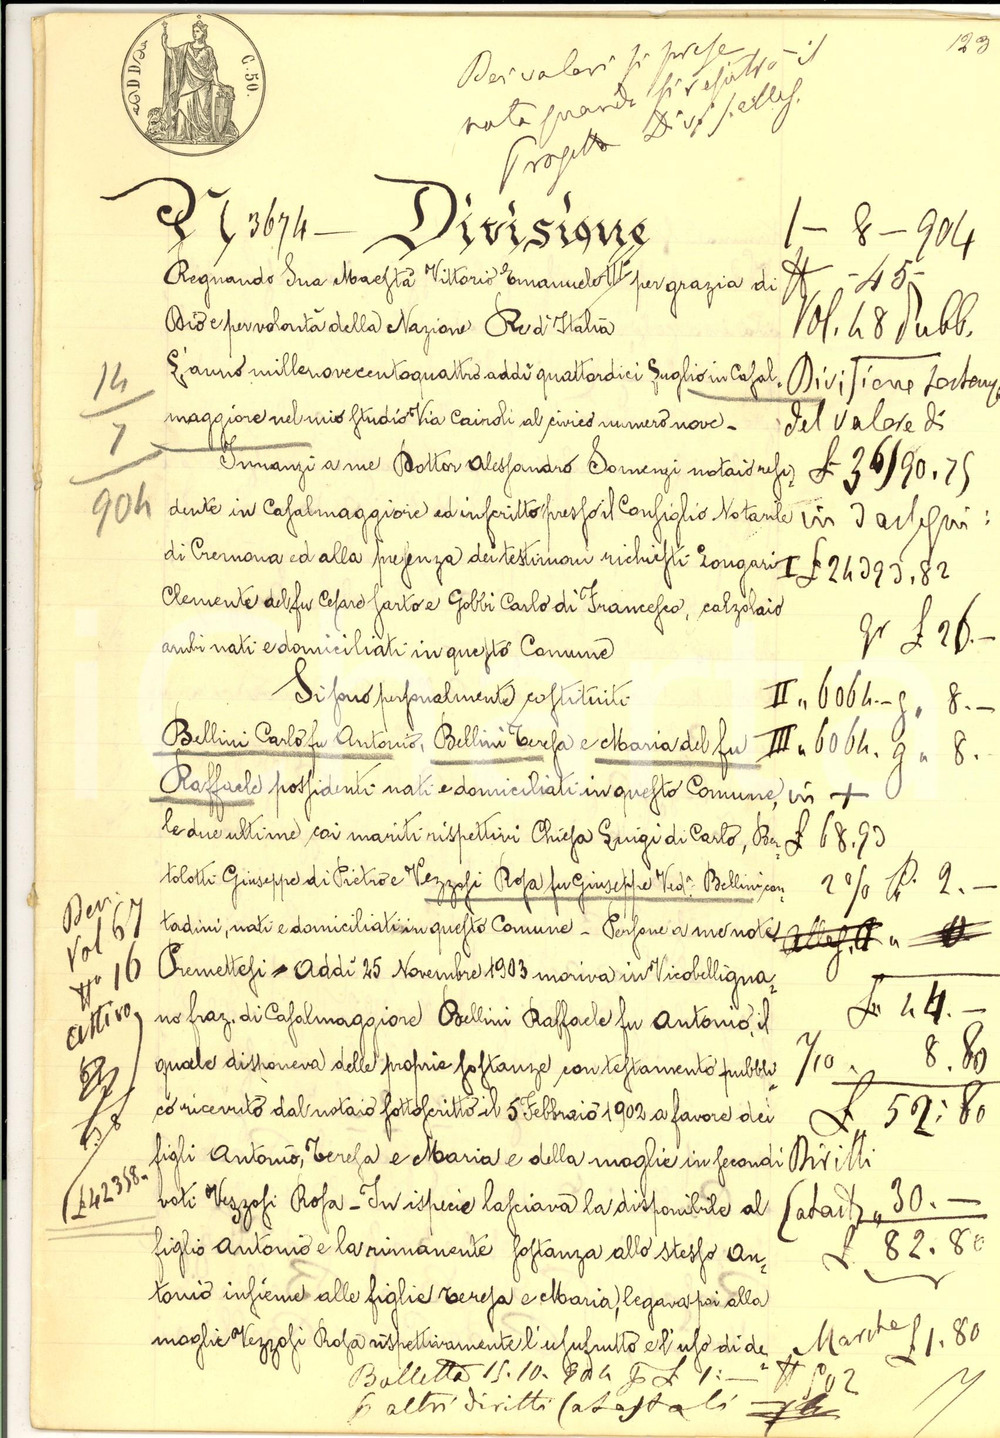 123
C. 50.
Dei valori si prese
nota quando si registrò il
Progetto Divis. allег.
N 3674 — Divisione
Regnando Sua Maestà Vittorio Emanuele III per grazia di
Dio e per volontà della Nazione Re d'Italia
L'anno millenovecentoquattro addì quattordici Luglio in Casal-
maggiore nel mio studio Via Cairoli al civico numero nove -
Innanzi a me Dottor Alessandro Somenzi notaio resi-
dente in Casalmaggiore ed inscritto presso il Consiglio Notarile
di Cremona ed alla presenza dei testimoni richiesti Longari
Clemente del fu Cesare sarto e Gobbi Carlo di Francesco, calzolaio
ambi nati e domiciliati in questo Comune
Si sono personalmente costituiti
Bellini Carlo fu Antonio, Bellini Teresa e Maria del fu
Raffaele possidenti nati e domiciliati in questo Comune,
le due ultime coi mariti rispettivi Chiesa Luigi di Carlo, Ber-
tolotti Giuseppe di Pietro e Vezzosi Rosa fu Giuseppe Ved.a Bellini con-
tadini, nati e domiciliati in questo Comune - Persone a me note
Premettesi - Addì 25 Novembre 1903 moriva in Vicobelligna-
no fraz. di Casalmaggiore Bellini Raffaele fu Antonio, il
quale disponeva delle proprie sostanze con testamento pubbli-
co ricevuto dal notaio sottoscritto il 5 Febbraio 1902 a favore dei
figli Antonio, Teresa e Maria e della moglie in secondi
voti Vezzosi Rosa - In ispecie lasciava la disponibile al
figlio Antonio e la rimanente sostanza allo stesso An-
tonio insieme alle figlie Teresa e Maria, legava poi alla
moglie Vezzosi Rosa rispettivamente l'usufrutto e l'uso di de-
1 - 8 - 904
N - 45 -
Vol. 48 Pubb.
Divisione
del valore di
£ 36190.75
in 3
I £ 24393.82
gr £ 26.-
II " 6064.- g " 8.-
III " 6064. g " 8.
in +
£ 68.93
2% 2.-
£ 44.-
2/10 8.80
£ 52.80
Diritti
Catast " 30.-
£ 82.80
Marche £ 1.80
14
7
904
Den.
Vol 67
N° 16
attivo
£ 42358-
Bolletta 15.10.904 £ 1.- N 502
p altri diritti Catastali